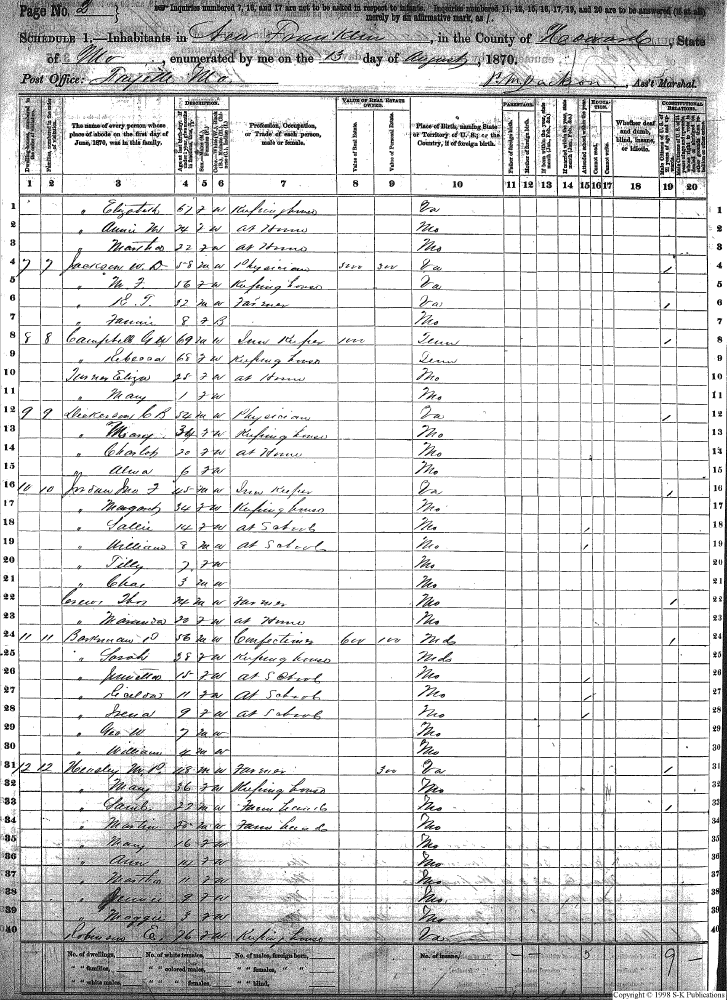 Page No. 2
Inquiries numbered 7, 16, and 17 are not to be asked in respect to infants. Inquiries numbered 11, 12, 15, 16, 17, 19, and 20 are to be answered (if at all)
merely by an affirmative mark, as /.
SCHEDULE 1.—Inhabitants in New Franklin, in the County of Howard, State
of Mo, enumerated by me on the 13 day of August, 1870.
Post Office: Fayette Mo Ass't Marshal.
DESCRIPTION. VALUE OF REAL ESTATE OWNED. PARENTAGE. EDUCATION. CONSTITUTIONAL RELATIONS.
The name of every person whose place of abode on the first day of June, 1870, was in this family.
Profession, Occupation, or Trade of each person, male or female.
Value of Real Estate.
Value of Personal Estate.
Place of Birth, naming State or Territory of U. S.; or the Country, if of foreign birth.
Father of foreign birth.
Mother of foreign birth.
If born within the year, state month (Jan., Feb., &c.)
If married within the year, state month (Jan., Feb., &c.)
Attended school within the year.
Cannot read.
Cannot write.
Whether deaf and dumb, blind, insane, or idiotic.
1 2 3 4 5 6 7 8 9 10 11 12 13 14 15 16 17 18 19 20
1 " Elizabeth 67 F W Keeping house Va 1
2 " Annie M 24 F W at Home Mo 2
3 " Martha 22 F W at Home Mo 3
4 7 7 Jackson W. D. 58 M W Physician 3000 300 Va / 4
5 " M. F. 56 F W Keeping house Va 5
6 " R. T. 32 M W Farmer Va / 6
7 " Fannie 8 F B Mo 7
8 8 8 Campbell G W 69 M W Inn Keeper 1000 Tenn / 8
9 " Rebecca 68 F W Keeping house Tenn 9
10 Turner Eliza 28 F W at Home Mo 10
11 " Mary 1 F W Mo 11
12 9 9 Dickerson C R 54 M W Physician Va / 12
13 " Mary 34 F W Keeping house Mo 13
14 " 20 F W at Home Mo 14
15 " Alma 6 F W Mo 15
16 10 10 Jordan Jno F 45 M W Inn Keeper Va / 16
17 " Margaret 34 F W Keeping house Mo 17
18 " Sallie 14 F W at School Mo / 18
19 " William 8 M W at School Mo / 19
20 " Tilly 7 F W Mo 20
21 " Chas 3 M W Mo 21
22 Crews Thos 24 M W Farmer Mo / 22
23 " 20 F W at Home Mo 23
24 11 11 56 M W Confectioner 600 100 Md / 24
25 " Sarah 38 F W Keeping house Md 25
26 " 15 F W at School Mo / 26
27 " 11 F W At School Mo / 27
28 " Irena 9 F W at School Mo / 28
29 " Geo W 7 M W Mo 29
30 " William 4 M W Mo 30
31 12 12 Hensley M. P. 48 M W Farmer 300 Va / 31
32 " Mary 36 F W Keeping house Mo 32
33 " Saml 22 M W Farm hand Mo / 33
34 " Martin 20 M W Farm hand Mo 34
35 " Mary 16 F W Mo 35
36 " Ann 14 F W Mo 36
37 " Martha 11 F W Mo 37
38 " 9 F W Mo 38
39 " Maggie 3 F W Mo 39
40 Robinson E. 76 F W Keeping house Va 40
No. of dwellings, No. of white females, No. of males, foreign born, No. of insane, 5 9
" " families, " " colored males, " " females, " "
" " white males, " " females, " " blind,
Copyright © 1998 S-K Publications